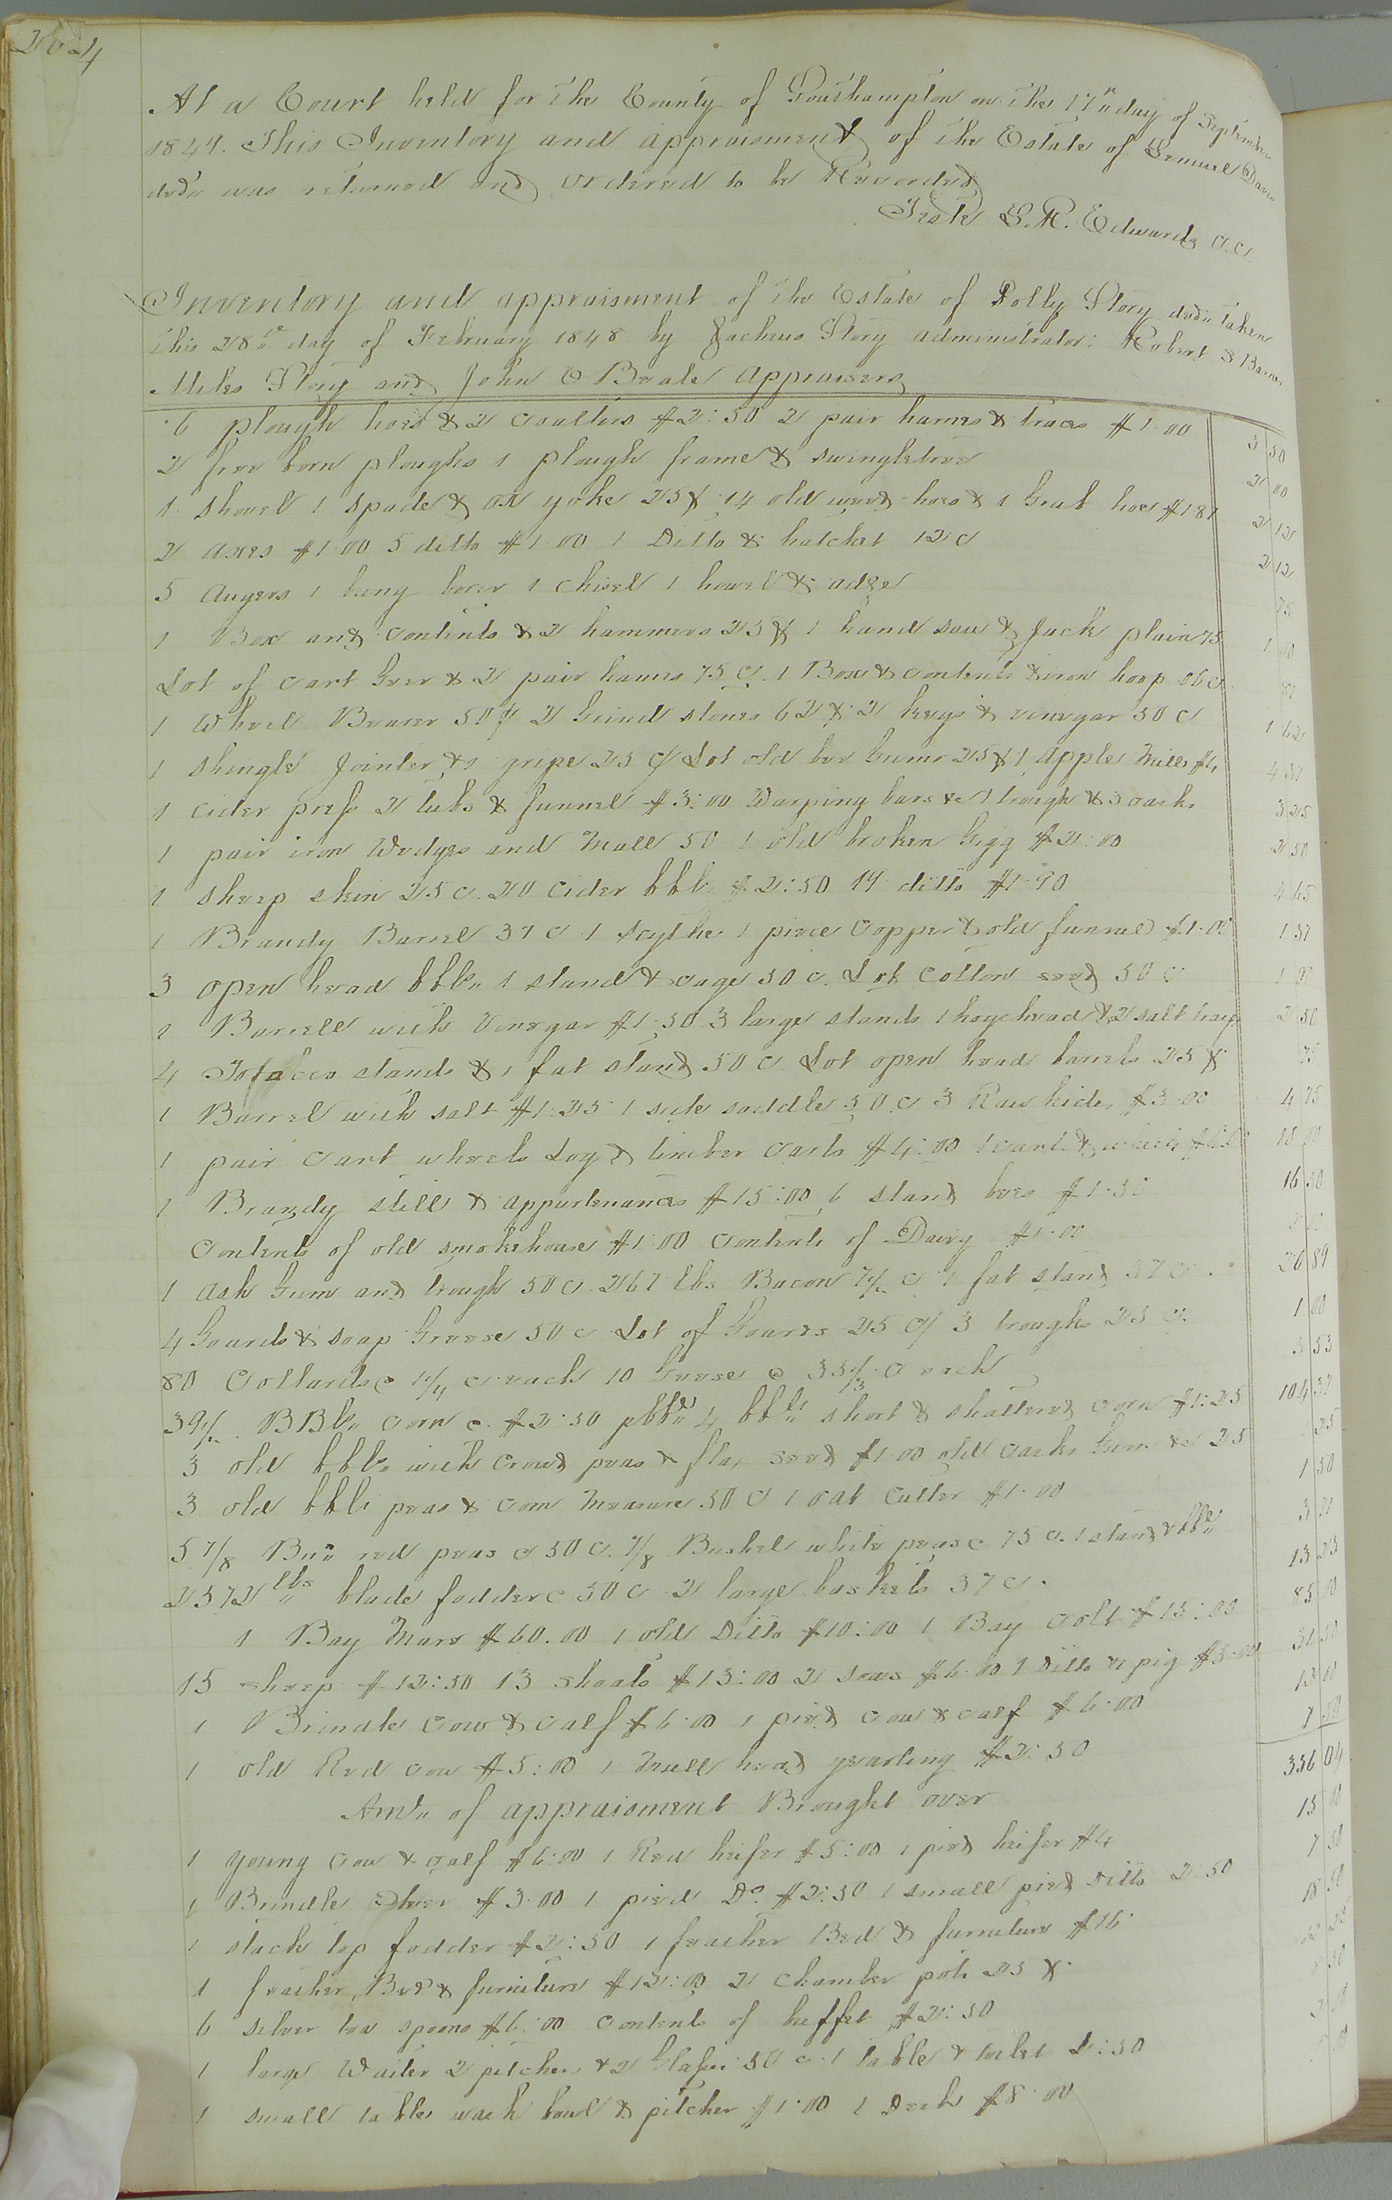 204
At a Court held for the County of Southampton on the 17th day of September
1849. This Inventory and appraisment of the Estate of Lemuel Davis
decd. was returned and ordered to be Recorded
Teste L. R. Edwards C.C.
Inventory and appraisment of the Estate of Polly Story decd. taken
this 28th day of February 1848 by Zacheus Story administrator: Robert S Barnes
Miles Story and John E Beale Appraisers
6 plough hoes & 2 coulters $2:50 2 pair hames & traces $1.00 3 50
2 free born ploughs 1 plough frame & swingletree 2 00
1 shovel 1 spade & ox yoke 25 ¢ 14 old weed hoes & 1 Grub hoe $1 87 2 12
2 axes $1.00 5 ditto $1.00 1 Ditto & hatchet 12 c 2 12
5 Augers 1 bung borer 1 chisel 1 howel & adze 75
1 Box and contents & 2 hammers 25 ¢ 1 hand saw & Jack plain 75 1 00
Lot of cart Geer & 2 pair hames 75 c. 1 Box & contents & iron hoop 06 c 81
1 Wheel Bearer 50 ¢ 2 Grind stones 62 ¢ 2 kegs & vinegar 50 c 1 62
1 shingle Jointer & gripe 25 c/ Lot old bee Gums 25 ¢ 1 Apple Mill $4 4 37
1 cider press 2 tubs & funnel $3:00 Warping bars &c 1 trough & 3 casks 3 25
1 pair iron Wedges and Mall 50 1 old broken Gigg $2.00 2 50
1 sheep skin 25 c. 20 cider bbls $2:50 19 ditto $1.90 4 65
1 Brandy Barrel 37 c 1 scythe 1 piece copper & old funnel $1.00 1 37
3 open head bbls. 1 stand & cage 50 c. Lot cotton seed 50 c 1 00
1 Barrell with Vinegar $1.50 3 large stands 1 hogshead & 2 salt trays 2 50
4 Tobacco stands & 1 fat stand 50 c Lot open head barrels 25 ¢ 75
1 Barrel with salt $1.25 1 side saddle 50 c 3 Raw hides $3.00 4 75
1 pair cart wheels Log & timber carts $4:00 1 cart & wheels 18 00
1 Brandy still & appurtenances $15:00 6 stand bees 16 50
Contents of old smokehouse $1.00 contents of Dairy $1.00
1 Ash Gum and trough 50 c 267 lbs Bacon 7½ c 1 fat stand 37 c. 20 89
4 Gourds & soap Grease 50 c Lot of Gourds 25 c/ 3 troughs 25 c. 1 00
80 Collards c 1¼ c each 10 Geese c 33⅓ c each 53
39½ BBls. corn c. $2:50 pbbl. 4 bbls. short & shattered corn $1:25 104 37
3 old bbls. with crowd peas & flax seed $1.00 old casks Gum &c 25 25
3 old bbls peas & corn Measure 50 c 1 oat Cutter $1.00 1 50
5 7/8 Bus. red peas c 50 c. 7/8 Bushel white peas c 75 c. 1 stand & bbl. 3
2572 lbs. blade fodder c 50 c 2 large baskets 37 c. 13 23
1 Bay Mare $60.00 1 old Ditto $10:00 1 Bay colt $15:00 85 00
15 sheep $12:50 13 shoats $13:00 2 sows $6.00 1 Ditto & pig $3.00
1 Brindle cow & calf $6.00 1 pied cow & calf $6.00 12 00
1 old Red cow $5:00 1 Mull head yearling $2:50 7 50
336 04
Amt. of appraisment Brought over
1 young cow & calf $6:00 1 Red heifer $5:00 1 pied heifer $4 15 00
1 Brindle steer $3.00 1 pied Do. $2:50 1 small pied ditto 2:50
1 stack top fodder $2:50 1 feather Bed & furniture $16. 18 50
1 feather Bed & furniture $12:00 2 chamber pots 25 ¢
6 silver tea spoons $6.00 contents of buffet $2:50
1 large Waiter 2 pitchers & 2 Glasses 50 c. 1 table & toilet 2:50
1 small table wash bowl & pitcher $1.00 1 Desk $8.00